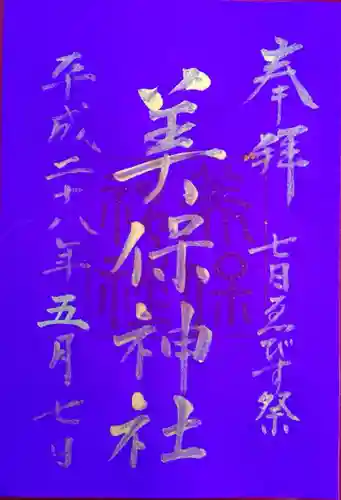 奉拝
七日ゑびす祭
美保神社
平成二十八年五月七日